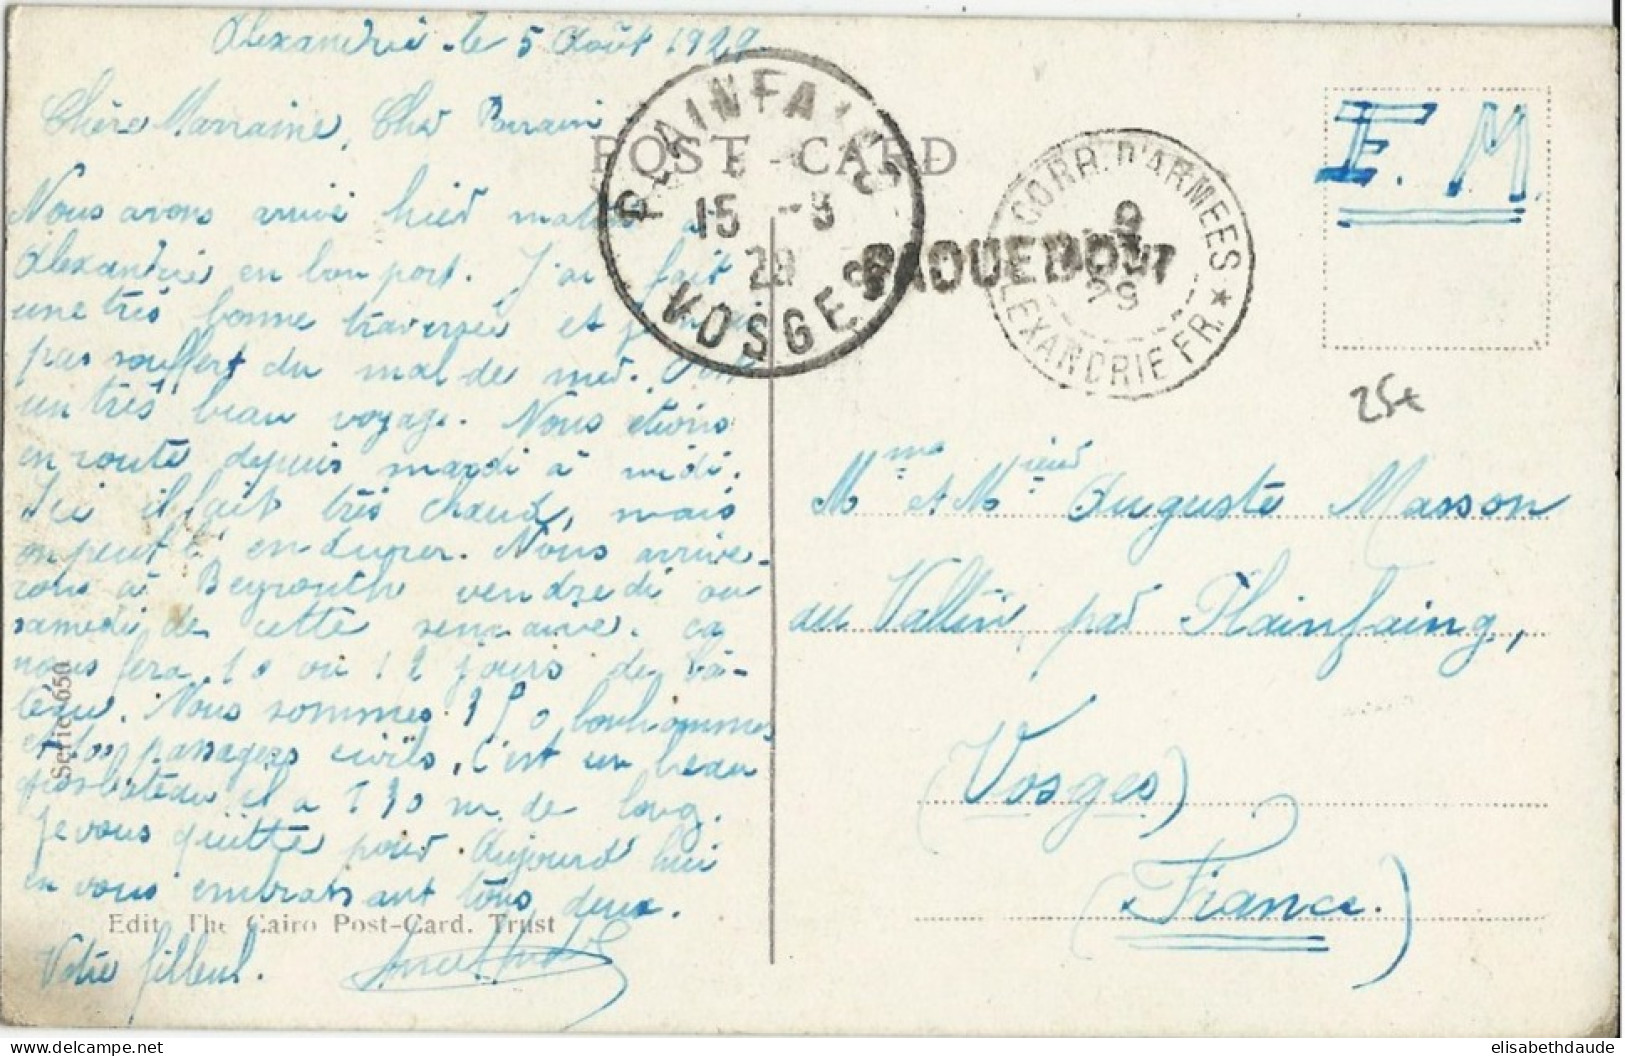 Alexandrie le 5 Août 1929
Chère Marraine, Cher Parrain
Nous avons arrivé hier matin à
Alexandrie en bon port. J'ai fait
une très bonne traversée et je
pas souffert du mal de mer.
un très beau voyage. Nous étions
en route depuis mardi à midi.
Ici il fait très chaud, mais
on peut l'endurer. Nous arrive-
rons à Beyrouth vendredi ou
samedi de cette semaine. ça
nous fera 10 ou 12 jours de bâ-
teau. Nous sommes bonhommes
passagers civils, c'est un beau
il a 130 m. de long.
je vous quitte pour Aujourd'hui
en vous embrassant tous deux.
Votre filleul.
Serie 650
Edit. The Cairo Post-Card. Trust
POST-CARD
PLAINFAING
15 -8
29
VOSGES
PAQUEBOT
CORR. D'ARMEES
9
AOUT
29
ALEXANDRIE FR.
F. M.
25€
Mme et Mrieur Auguste Masson
au Valtin, par Plainfaing,
(Vosges)
(France.)
elisabethdaude